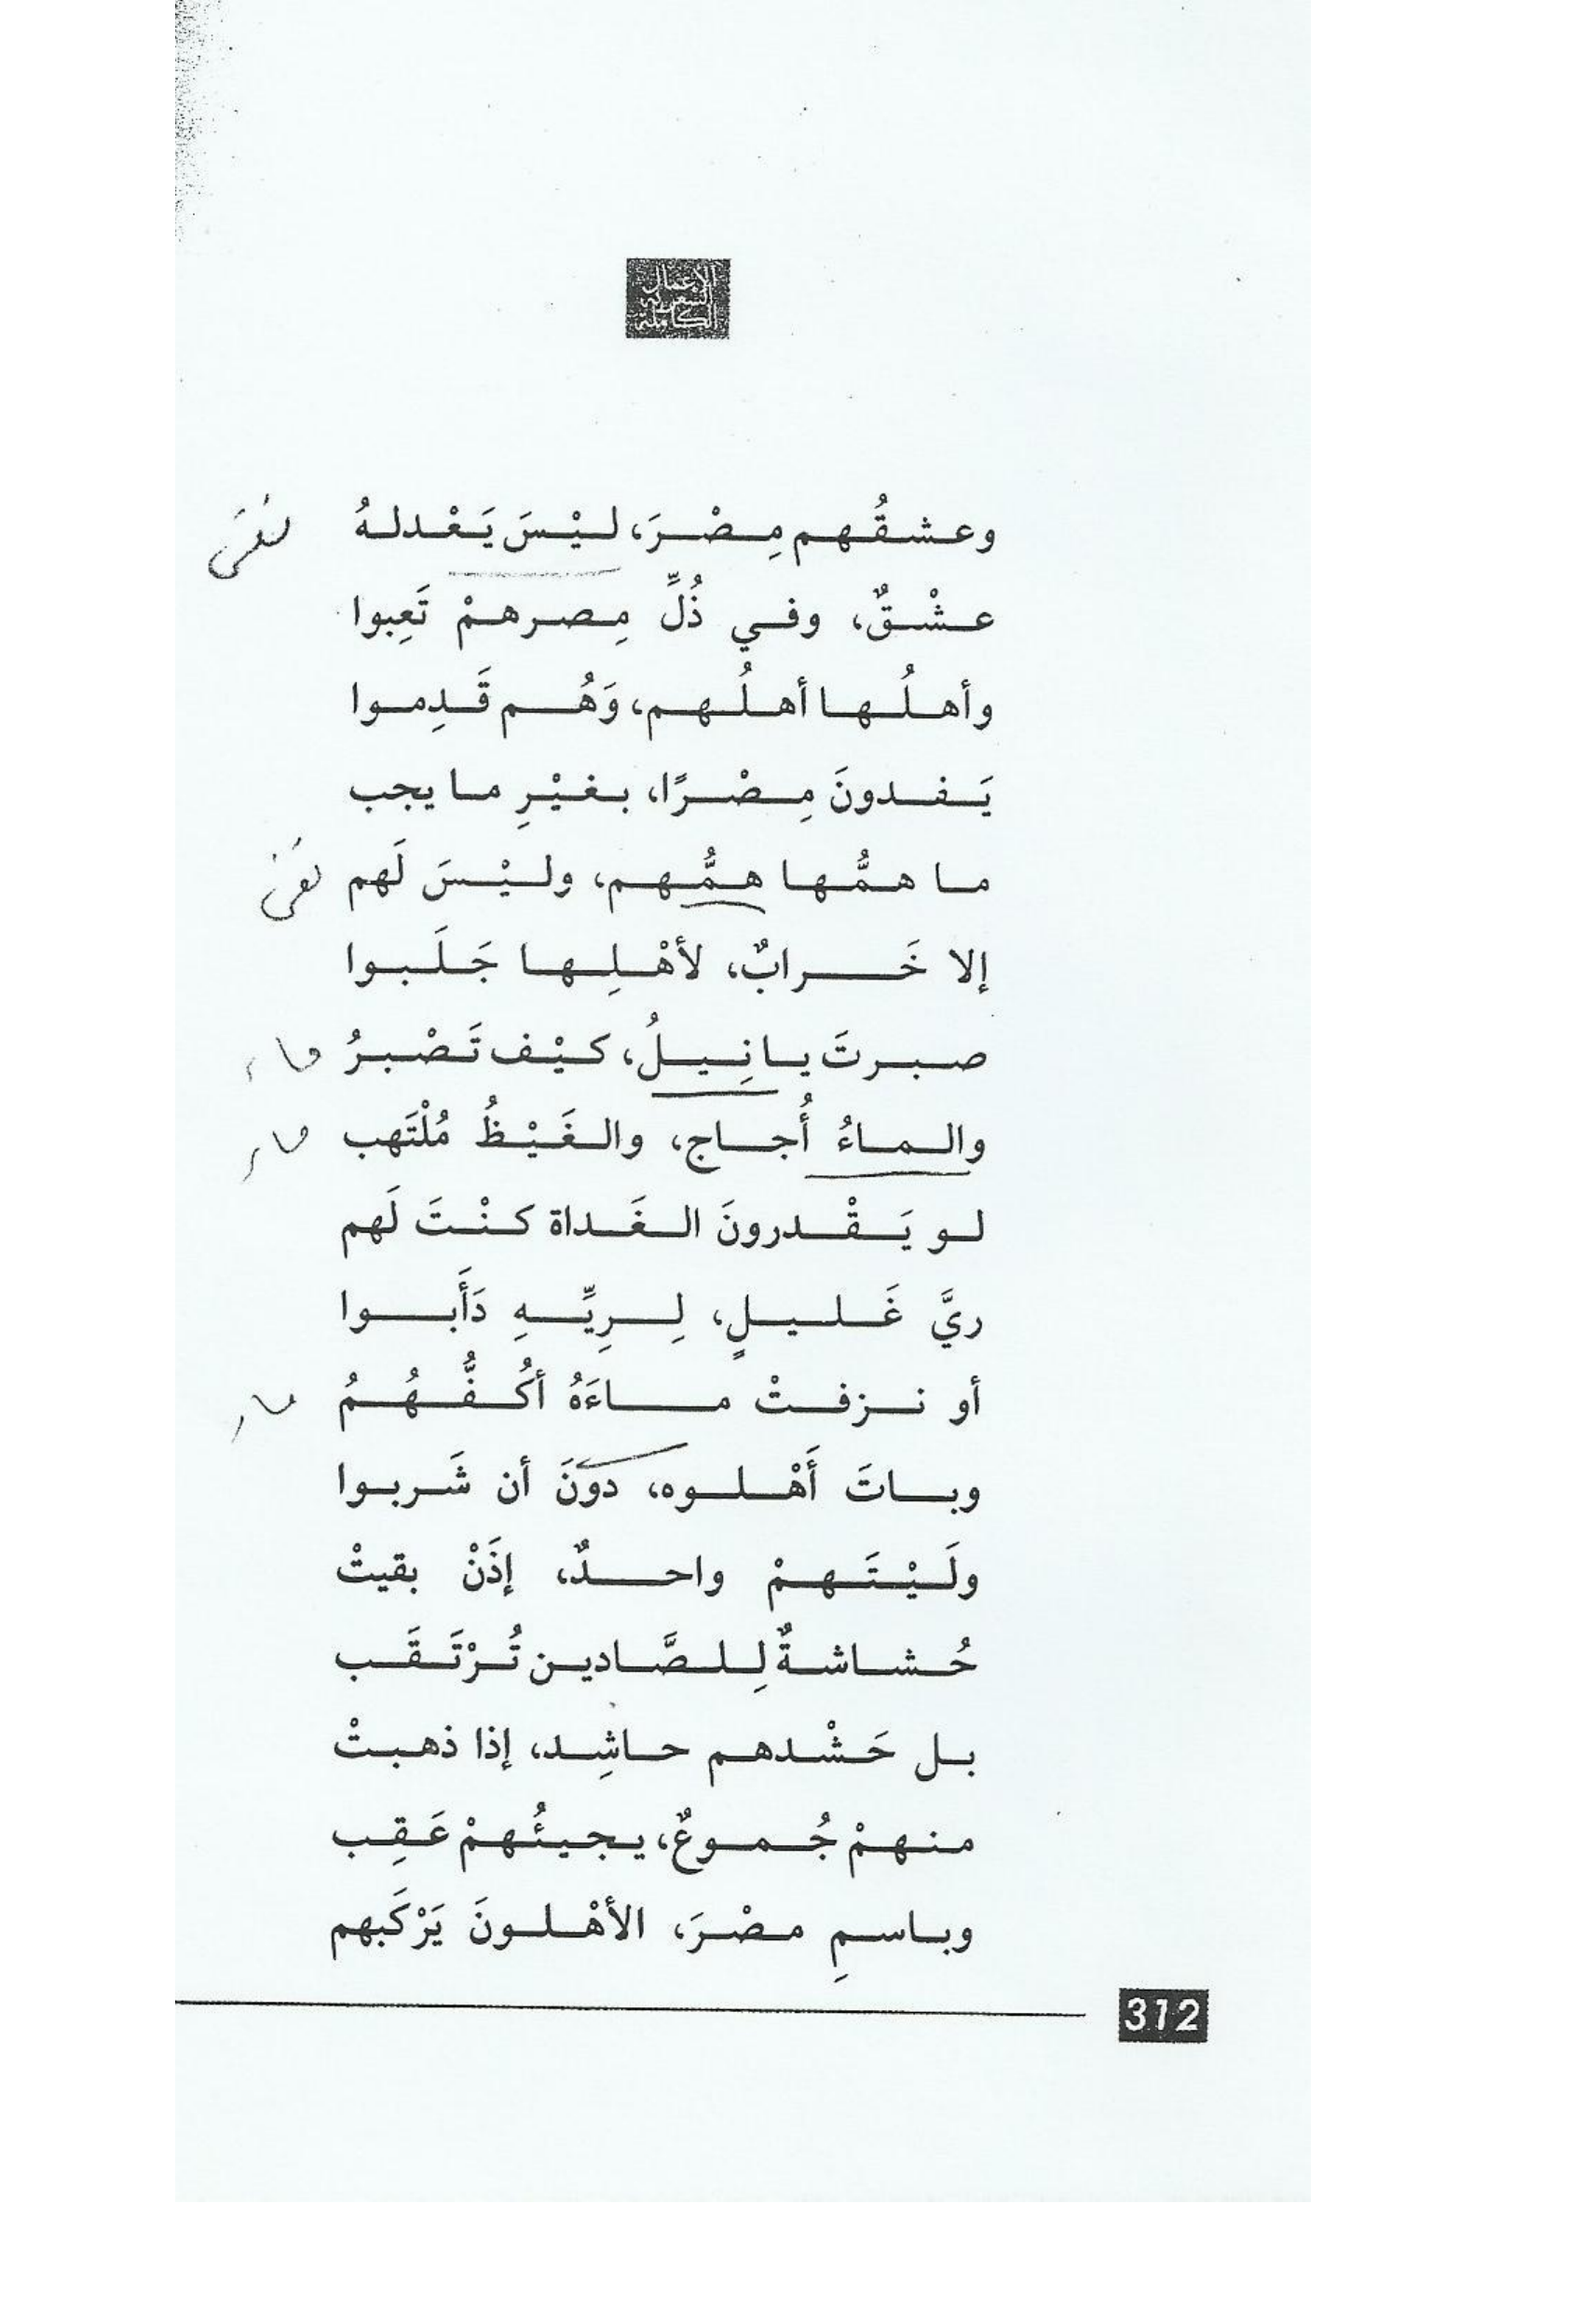 الأعمال
الشعرية
الكاملة
وعشقُهم مِصْرَ، ليْسَ يَعْدلهُ
نفى
عشْقٌ، وفي ذُلِّ مِصرهمْ تَعِبوا
وأهلُها أهلُهم، وَهُم قَدِموا
يَفدونَ مِصْرًا، بغيْرِ ما يجب
ما همُّها همُّهم، وليْسَ لَهم
نفى
إلا خَرابٌ، لأهْلِها جَلَبوا
صبرتَ يا نِيلُ، كيْف تَصْبرُ
ماء
والماءُ أُجاج، والغَيْظُ مُلْتَهب
ماء
لو يَقْدرونَ الغَداة كنْتَ لَهم
ريَّ غَليلٍ، لِرِيِّهِ دَأَبوا
أو نزفتْ ماءَهُ أكُفُّهُمُ
ماء
وباتَ أَهْلوه، دونَ أن شَربوا
ولَيْتَهمْ واحدٌ، إذَنْ بقيتْ
حُشاشةٌ لِلصَّادين تُرْتَقَب
بل حَشْدهم حاشِد، إذا ذهبتْ
منهمْ جُموعٌ، يجيئُهمْ عَقِب
وباسمِ مصْرَ، الأهْلونَ يَرْكَبهم
312